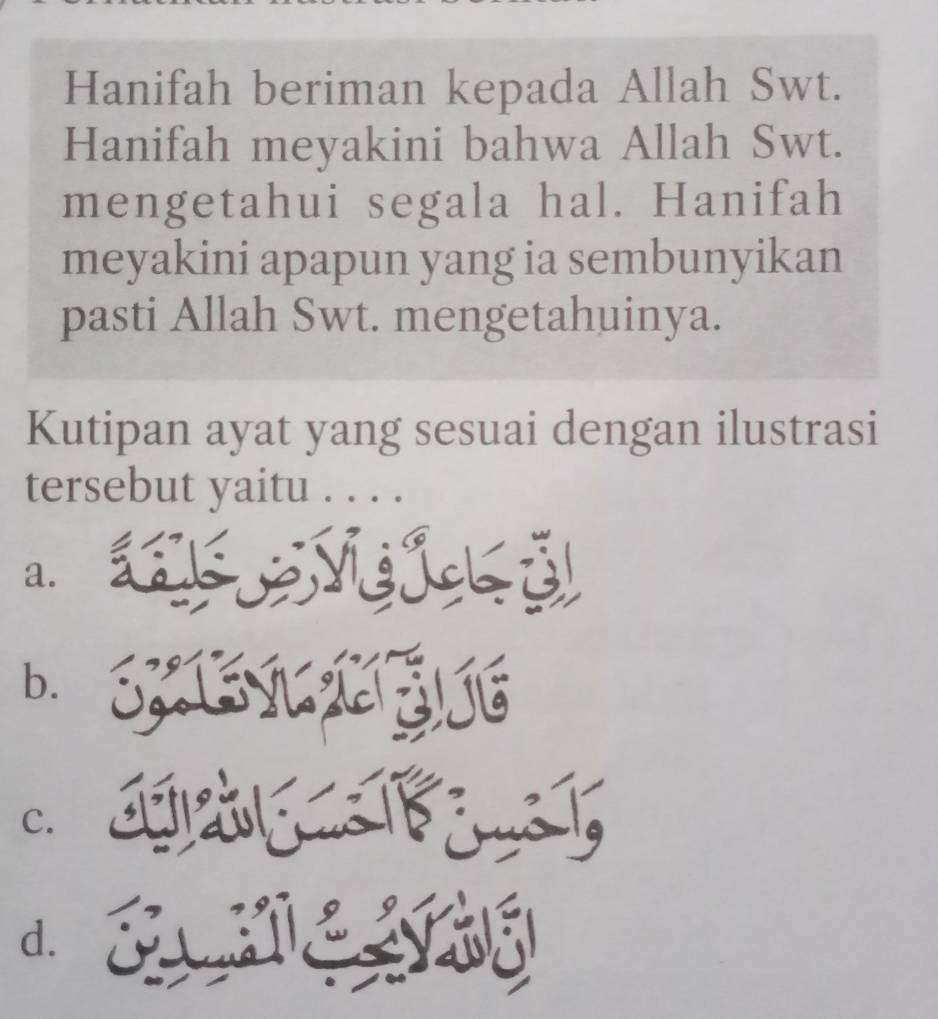 Hanifah beriman kepada Allah Swt.
Hanifah meyakini bahwa Allah Swt.
mengetahui segala hal. Hanifah
meyakini apapun yang ia sembunyikan
pasti Allah Swt. mengetahuinya.
Kutipan ayat yang sesuai dengan ilustrasi
tersebut yaitu . . . .
a. اِنِّيْ جَاعِلٌ فِى الْاَرْضِ خَلِيْفَةً
b. قَالَ اِنِّيْٓ اَعْلَمُ مَا لَا تَعْلَمُوْنَ
c. وَاَحْسِنْ كَمَآ اَحْسَنَ اللّٰهُ اِلَيْكَ
d. اِنَّ اللّٰهَ لَا يُحِبُّ الْمُفْسِدِيْنَ